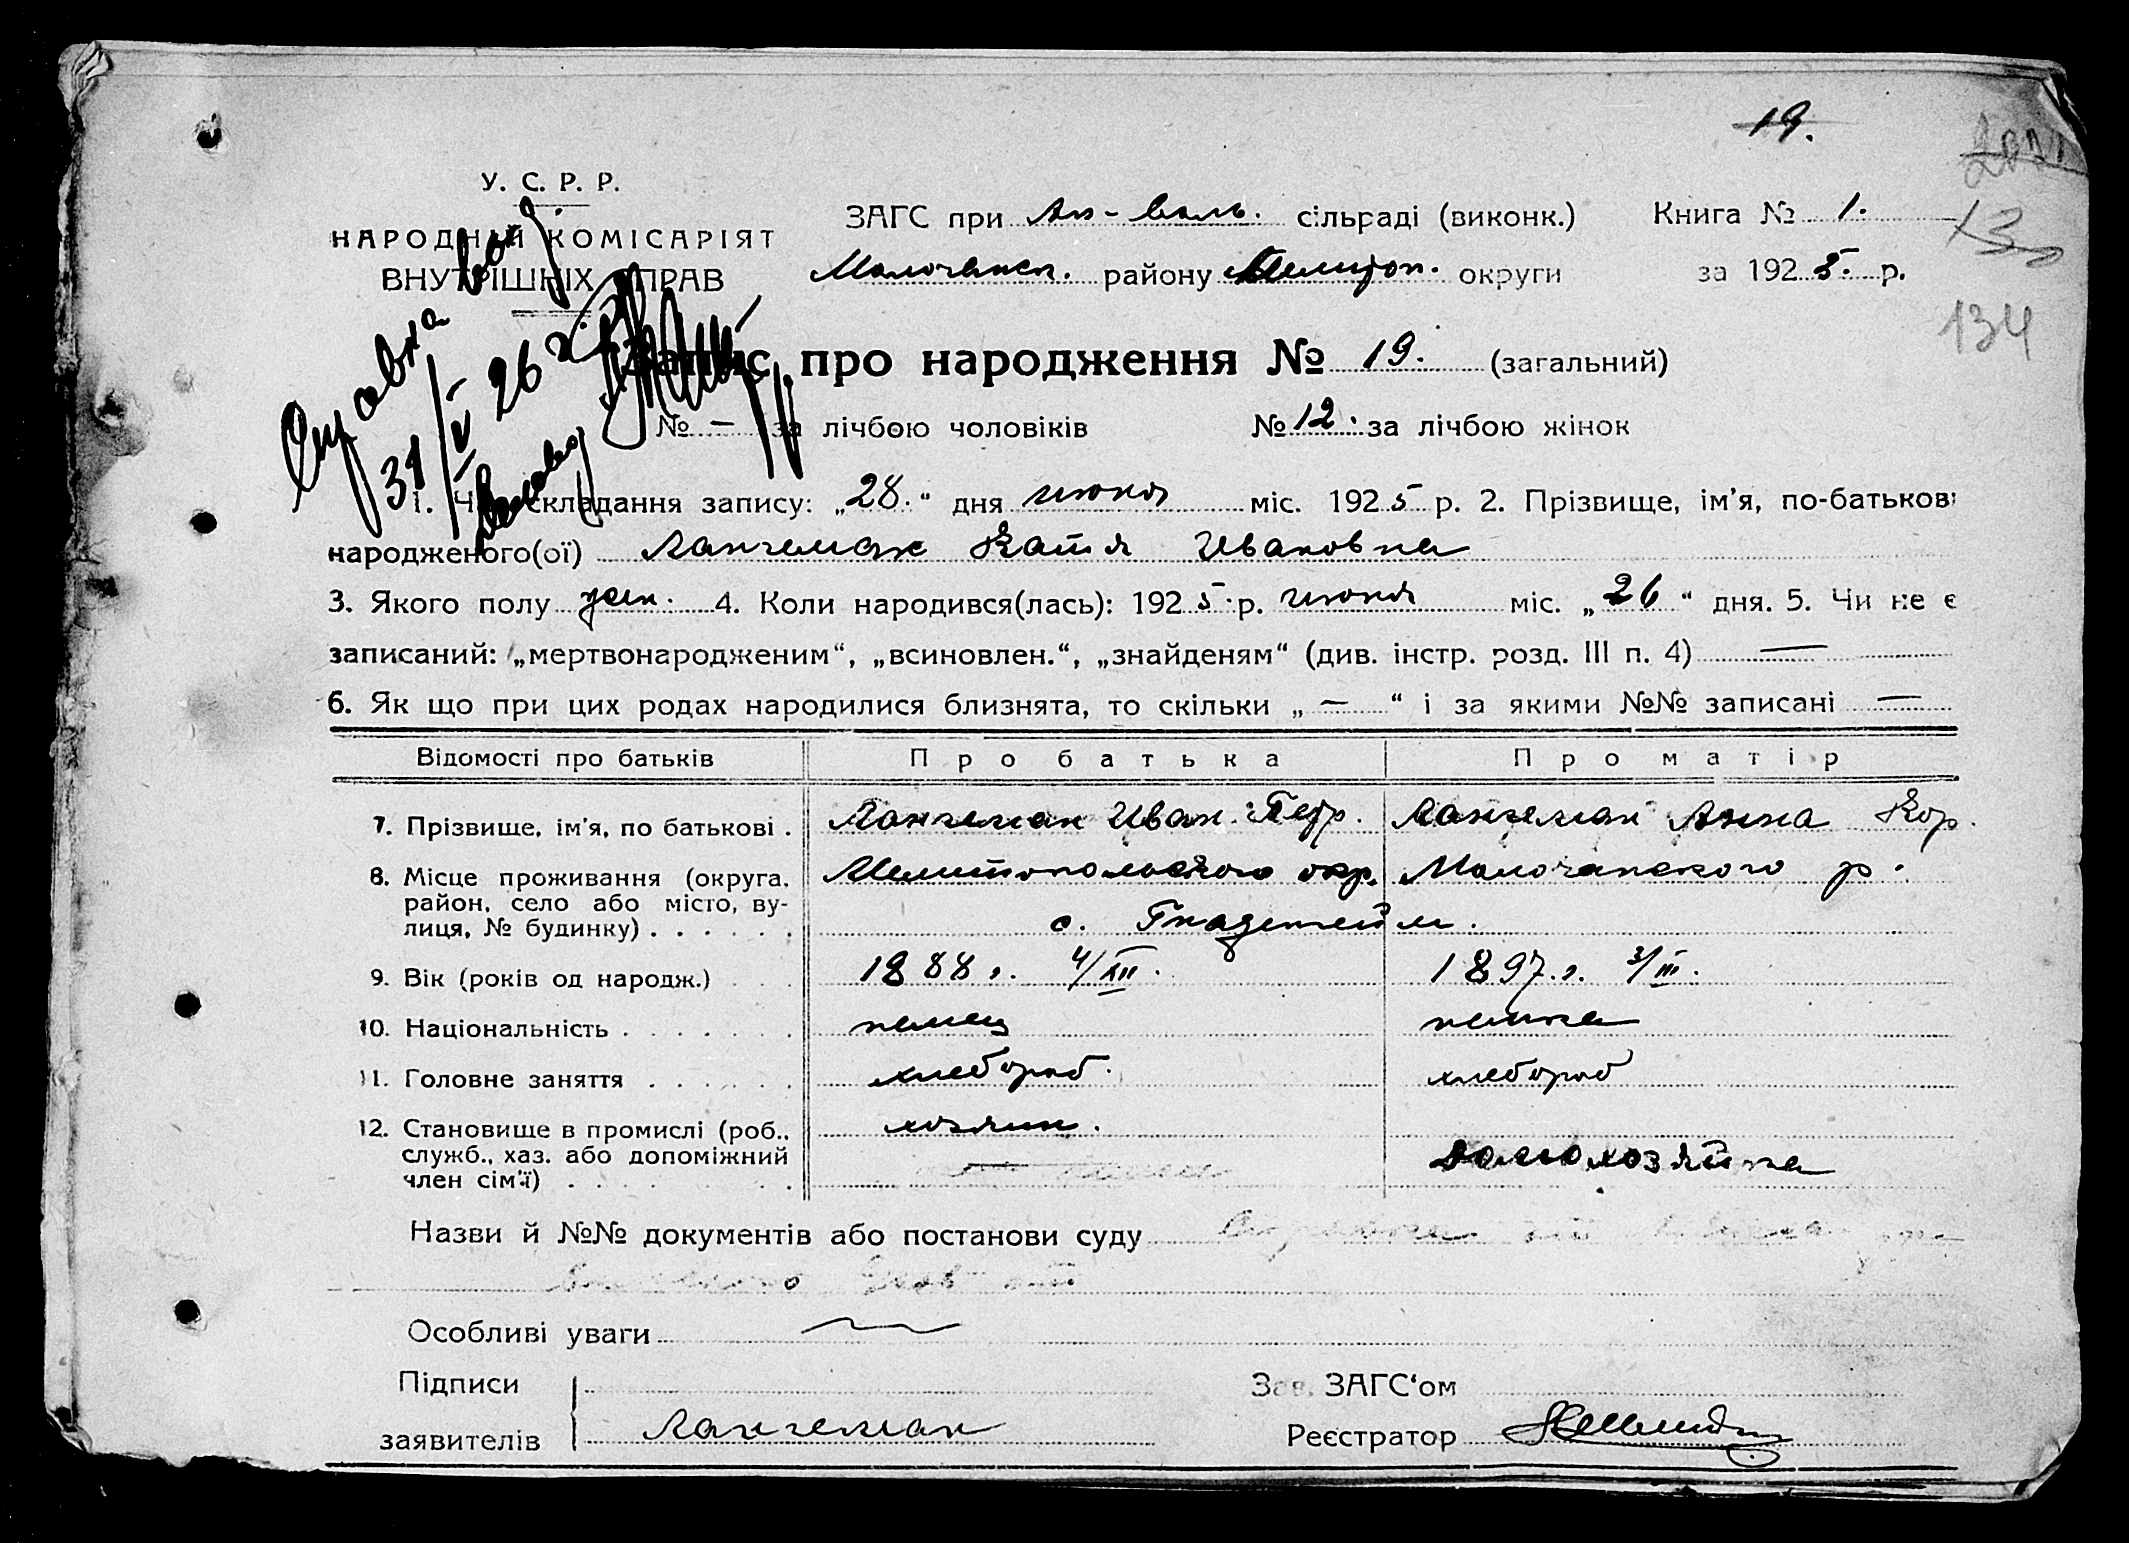 19.
У. С. Р. Р.
НАРОДНИЙ КОМІСАРІЯТ
ВНУТРІШНІХ СПРАВ
ЗАГС при Ал-Валь. сільраді (виконк.) Книга № 1.
Молочанск. району Мелитоп. округи за 1925. р.
134
Справка выд.
31/V 26 г.
Запис про народження № 19. (загальний)
№ — за лічбою чоловіків № 12. за лічбою жінок
1. Час складання запису: „28.“ дня июня міс. 1925 р. 2. Прізвище, ім'я, по-батькові
народженого(ої) Лангеман Катя Ивановна
3. Якого полу жен. 4. Коли народився(лась): 1925. р. июня міс. „26“ дня. 5. Чи не є
записаний: „мертвонародженим“, „всиновлен.“, „знайденям“ (див. інстр. розд. III п. 4) —
6. Як що при цих родах народилися близнята, то скільки „—“ і за якими №№ записані —
Відомості про батьків Про батька Про матір
7. Прізвище, ім'я, по батькові . Лангеман Иван. Петр. Лангеман Анна Кор.
8. Місце проживання (округа, район, село або місто, вулиця, № будинку) . . . . . . Мелитопольского окр. Молочанского р.
с. Гнадентейм.
9. Вік (років од народж.) . . . 1888 г. 4/XII. 1897. г. 3/III.
10. Національність . . . . . . . немец немка
11. Головне заняття . . . . . . хлебороб. хлебороб
12. Становище в промислі (роб., служб., хаз. або допоміжний член сім'ї) . . . . хозяин. домохозяйка
Назви й №№ документів або постанови суду
Особливі уваги —
Підписи Зав. ЗАГС'ом
заявителів Лангеман Реєстратор